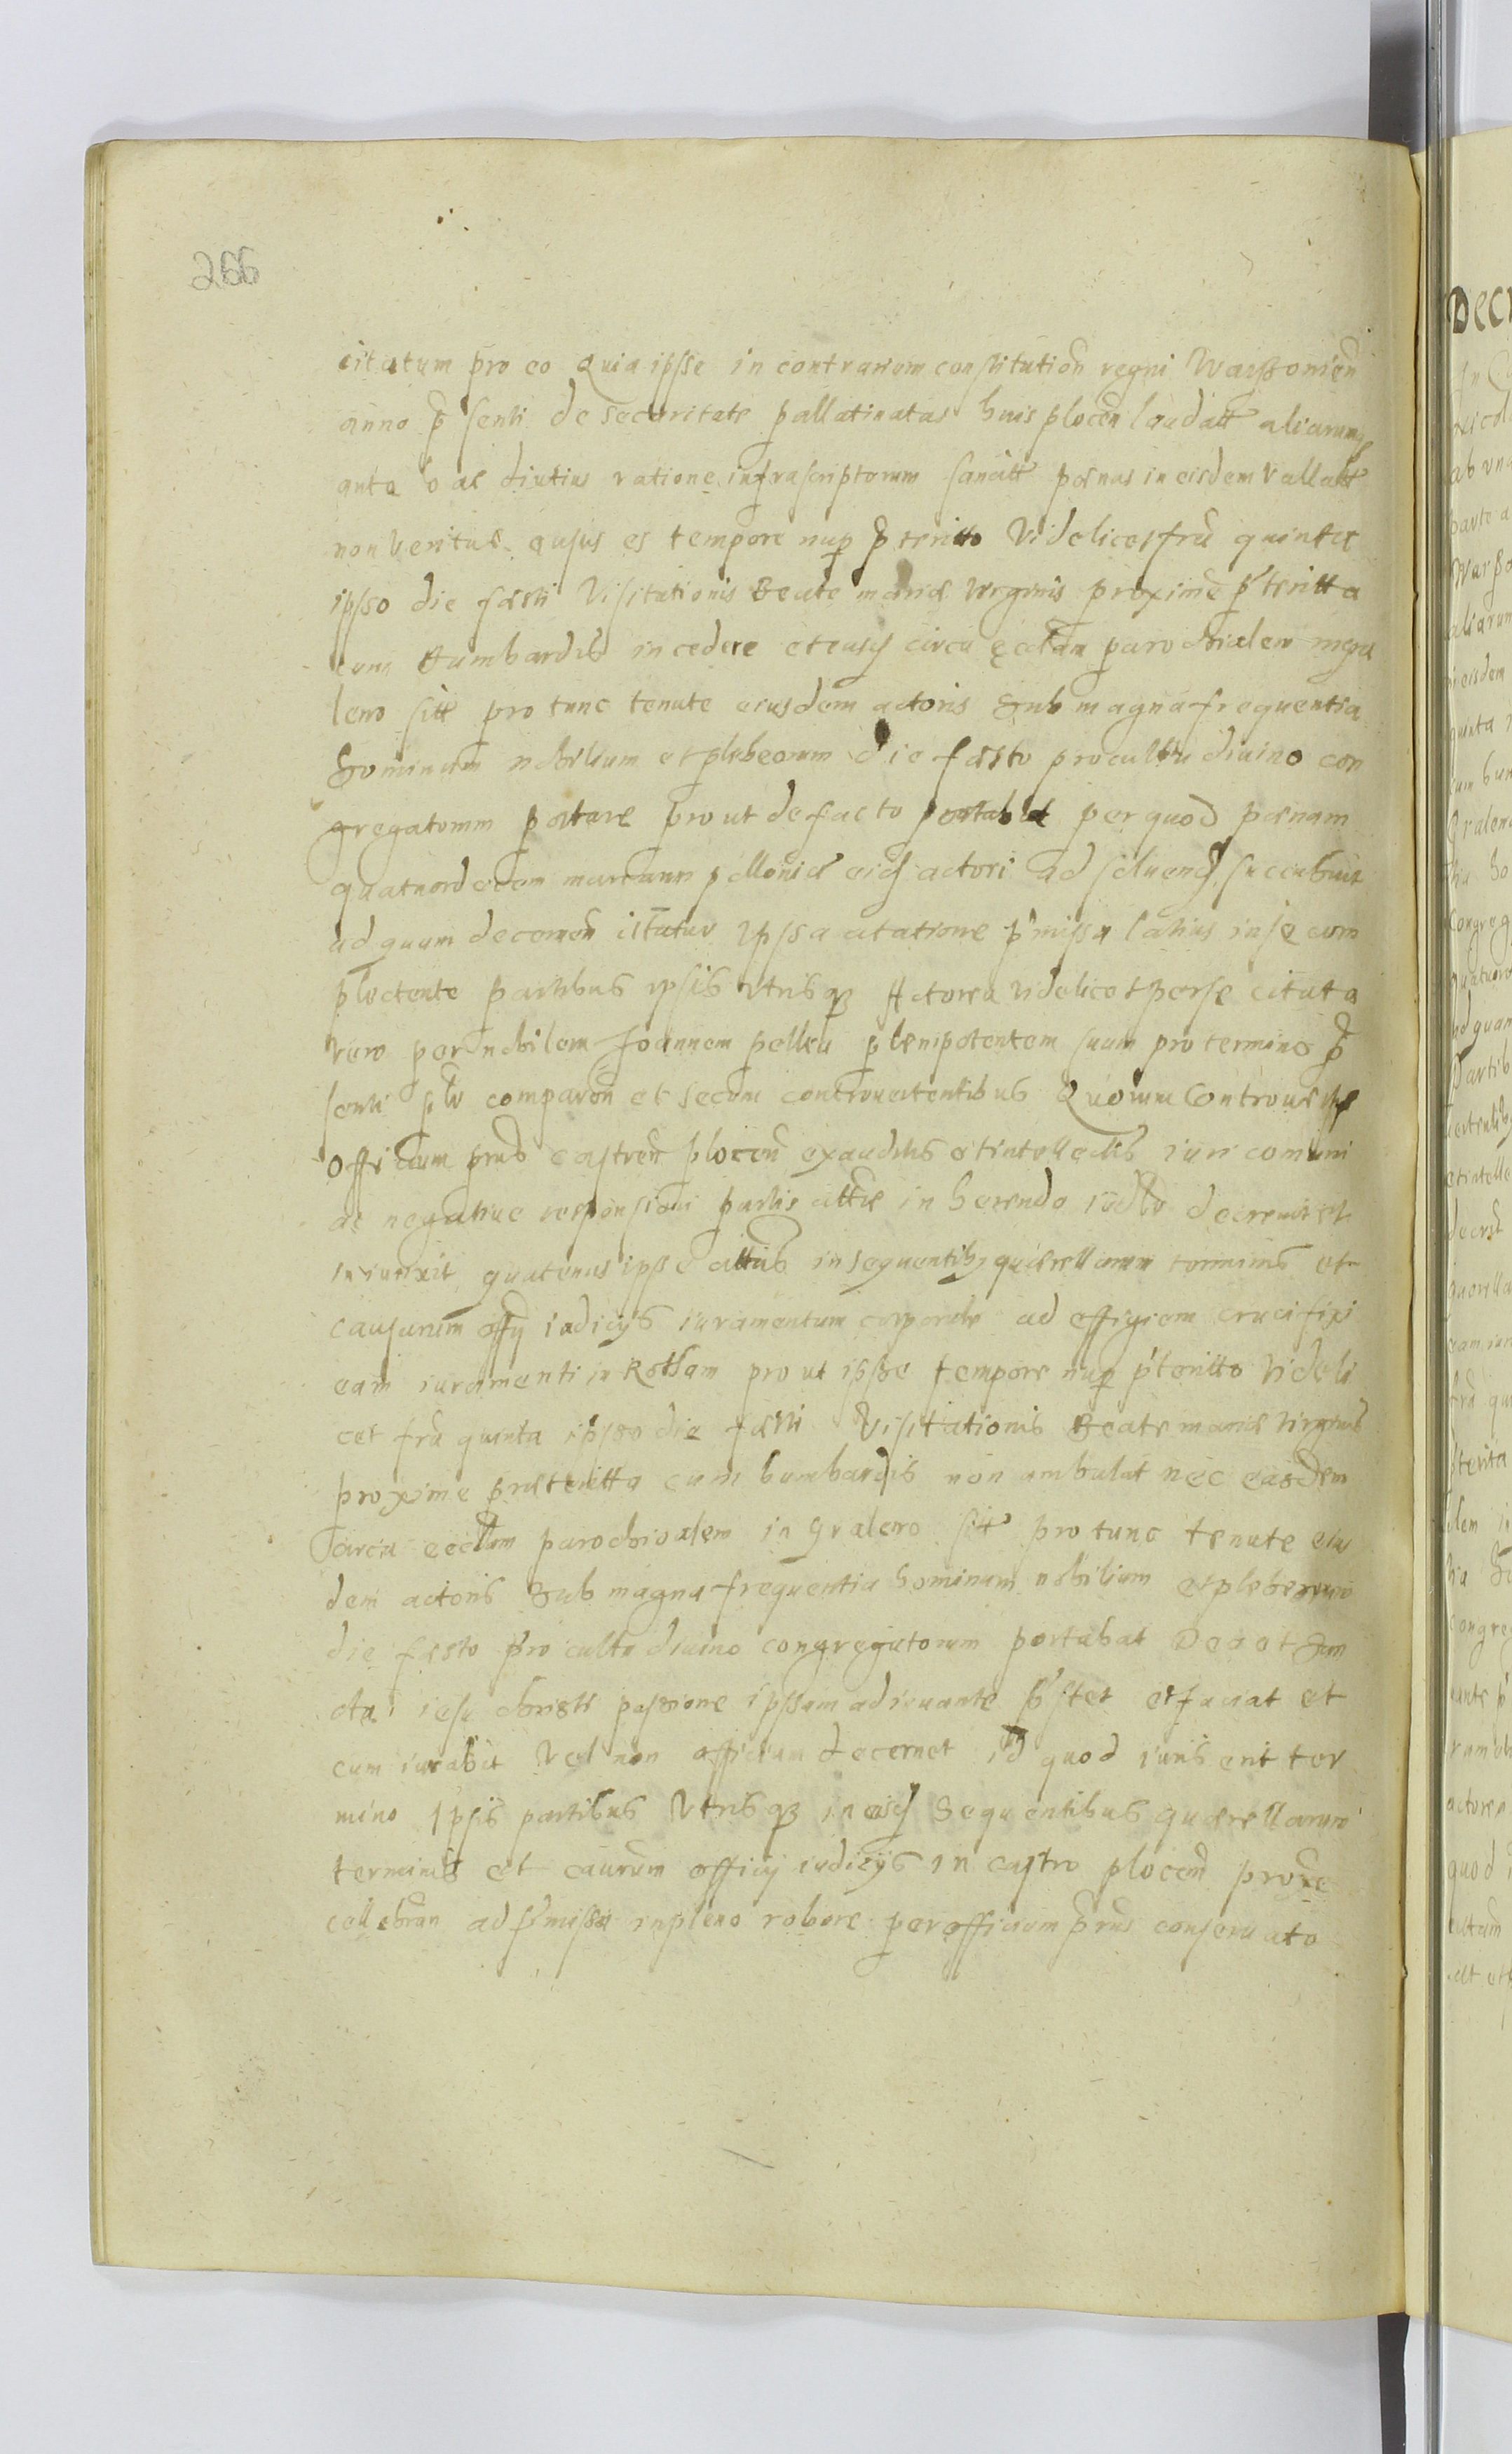 266
citatum pro eo Quia ipsse in contrarium constitution regni Warssonien
anno p̄senti de securitate pallatinatus huius plocen laudatt aliarumq
ante hac diutius ratione infrascriptorum sancitt poenas in eisdem vallatt
non veritus ausus es tempore nup p̄teritto Videlicet fria quinta
ipsso die fæsti Visitationis Beate mariæ virginis proxime p̄teritta
cum Bumbardis incedere et easq circa ecclan parochialem ingra
leno sitt pro tunc tenute eiusdem actoris Sub magna frequentia
hominum nobilium et plebeorum die fæsto pro cultu diuino con
gregatorum portare prout de facto portabat per quod poenam
quatuordecem marcarum pollonicæ eidq actori ad soluendq succubuit
ad quam decernen citatur ypssa citatione p̄missa latius in se com
plectente partibus ipsis Vtrisq Actorea videlicet per se citata
vero per nobilem Joannem pelka plenipotentem suum pro termino p̄
senti plr comparen et secum controuertentibus Quorum Controuersys
Officium prns castren plocen exauditis et intellectis iuri comuni
ac negatiue responsioni partis cittæ in herendo iudlr decreuit et
iniunxit quatenus ipsse cittus in sequentib querellarum terminis et
causarum offy iudicys iuramentum corporale ad effigiem crucifixi
eam iuramenti in Rotham prout ipsse tempore nup p̄teritto Videli
cet fria quinta ipsso die fæsti Visitationis Beate mariæ virginis
proxime præteritta cum bumbardis non ambulat nec easdem
circa ecclam parochioalem in gralewo sitt pro tunc tenute eius
dem actoris Sub magna frequentia hominum nobilium et plebeorum
die fæsto pro cultu diuino congregatorum portabat Deo et San
cta iesu christi passione ipssum adiuuante p̄stet et faciat et
cum iurabit Vel non officium decernet id quod iuris erit ter
mino Ipsis partibus Vtrisq in eisq Sequentibus quærellarum
terminis et caurum officij iudicijs in castro plocen proxe
cellebran ad p̄missa in pleno robore per officium prns conseruato